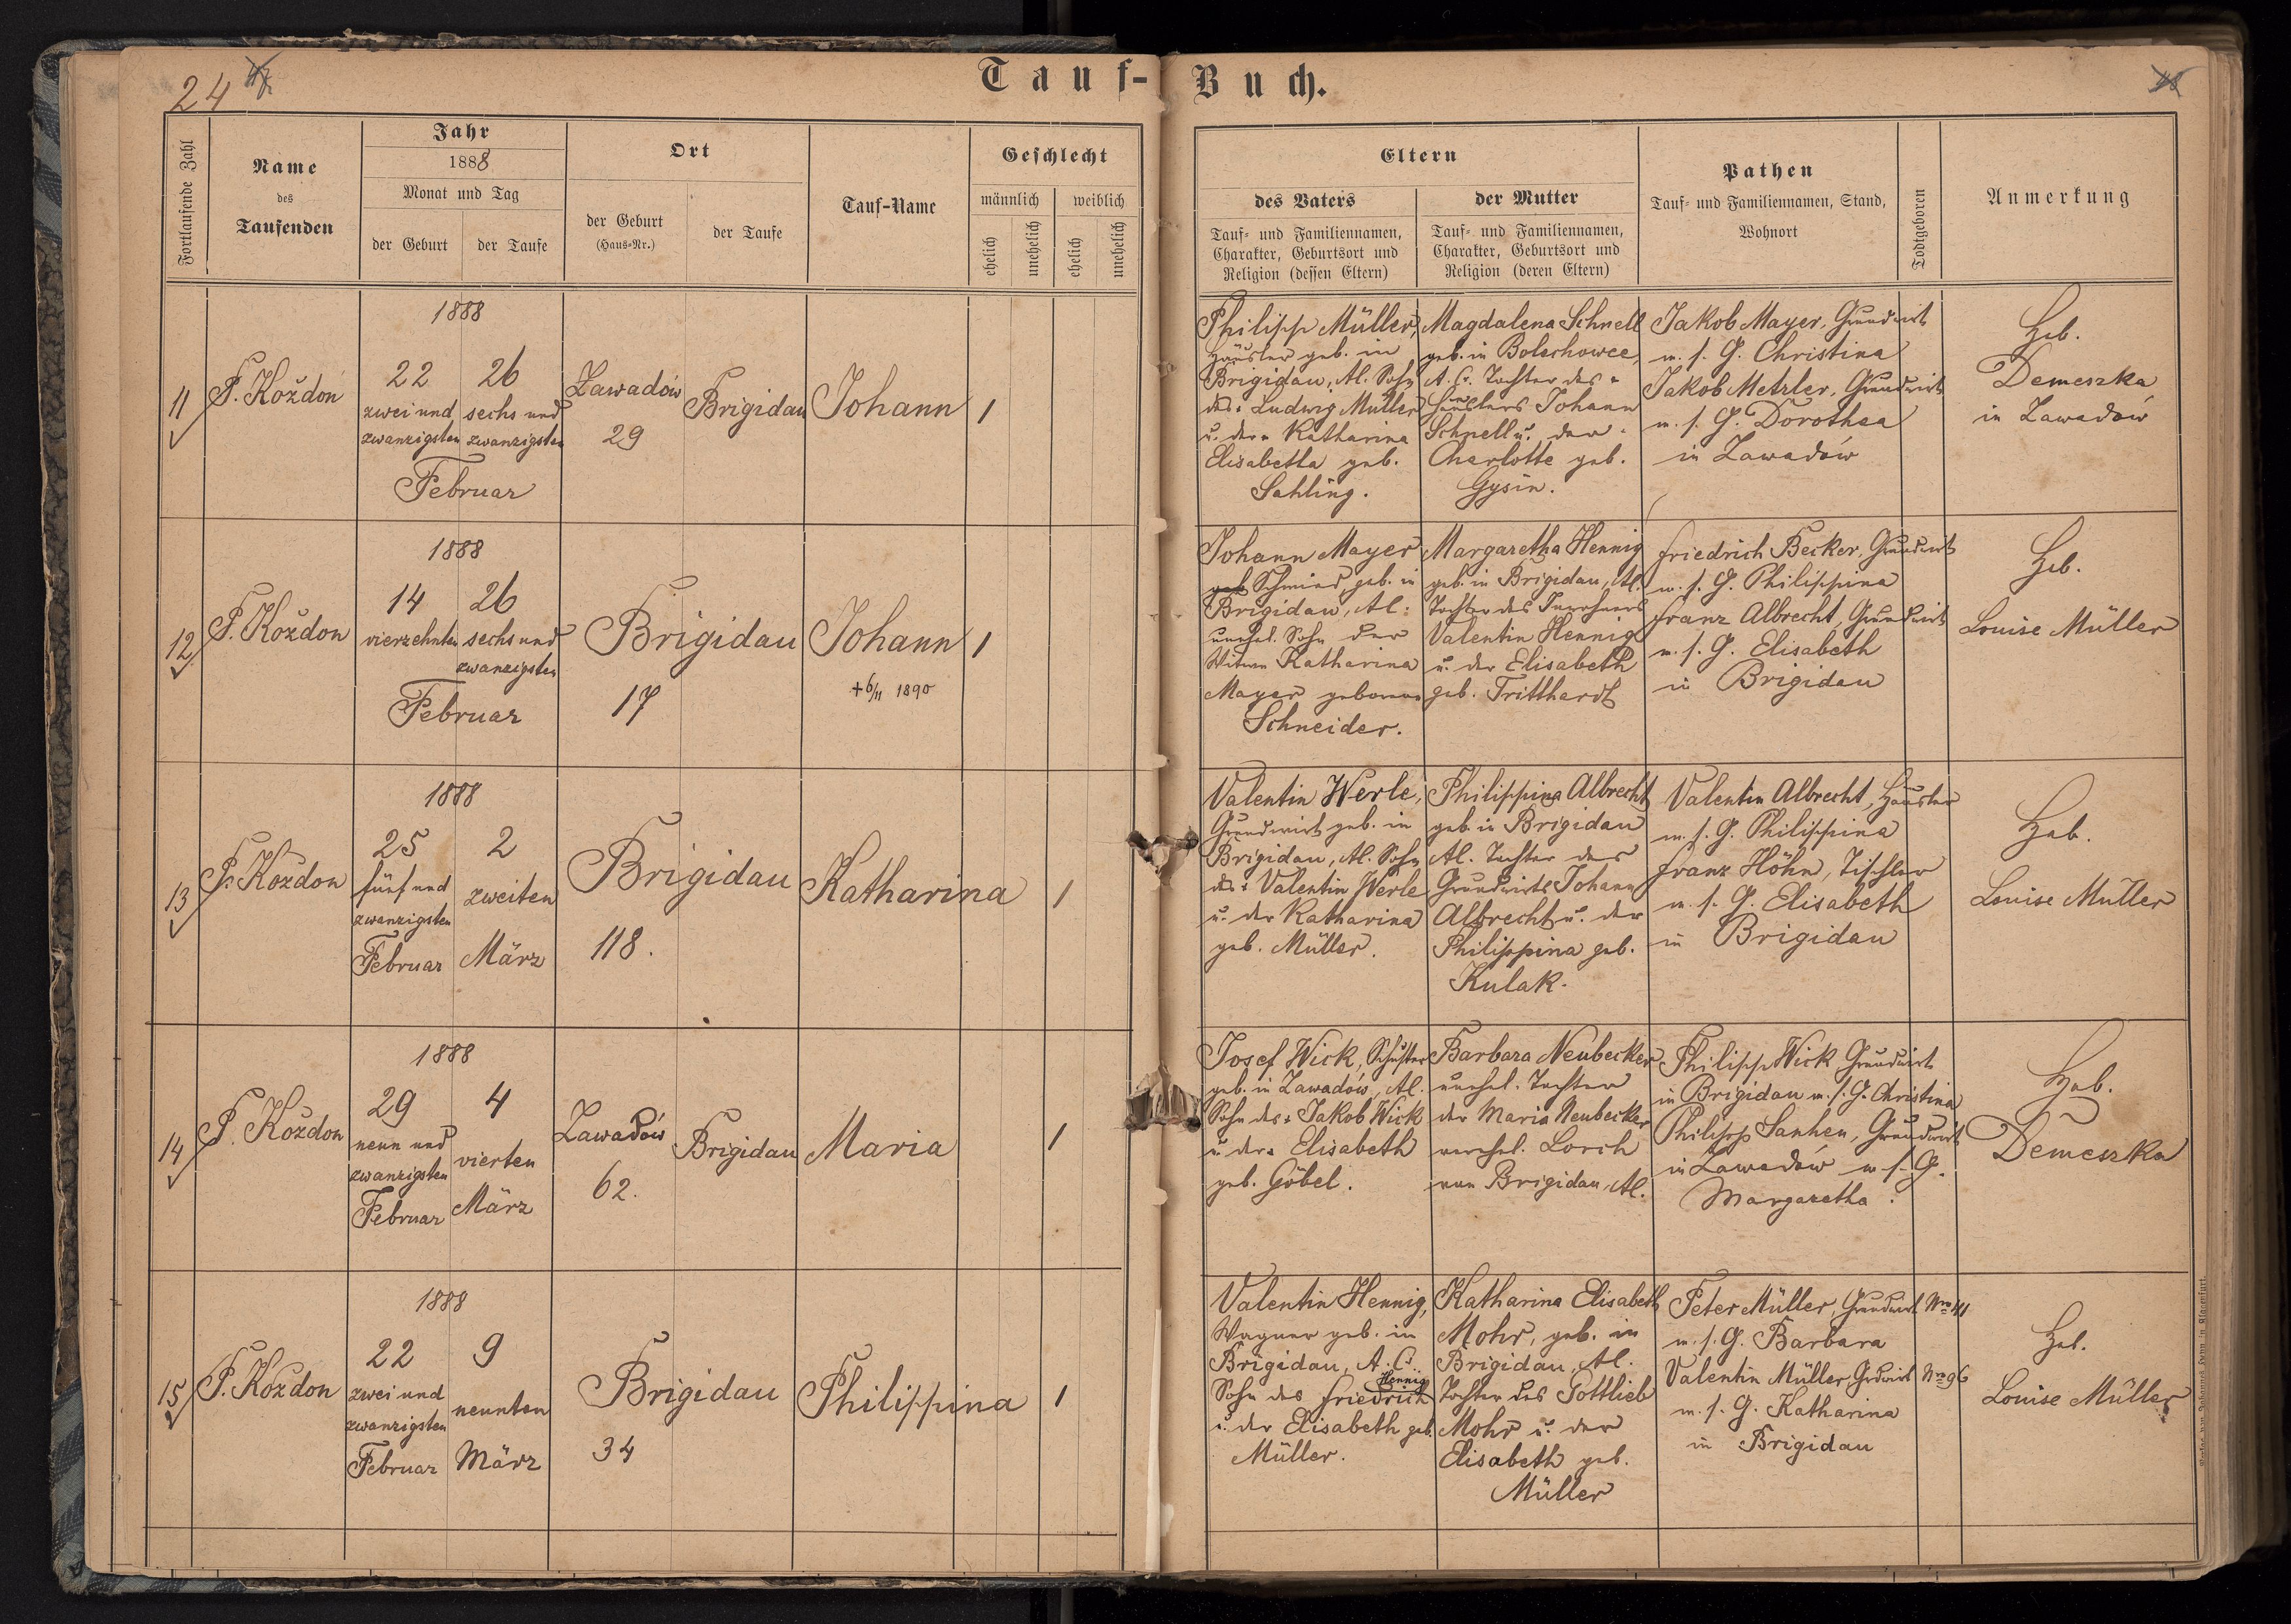 24
Tauf-Buch.
Fortlaufende Zahl
Name
des
Taufenden
Jahr
1888
Monat und Tag
der Geburt
der Taufe
Ort
der Geburt
(Haus-Nr.)
der Taufe
Tauf-Name
Geschlecht
männlich
weiblich
ehelich
unehelich
ehelich
unehelich
Eltern
des Vaters
Tauf- und Familiennamen,
Charakter, Geburtsort und
Religion (dessen Eltern)
der Mutter
Tauf- und Familiennamen,
Charakter, Geburtsort und
Religion (deren Eltern)
Pathen
Tauf- und Familiennamen, Stand,
Wohnort
Todtgeboren
Anmerkung
11
P. Koždoń
1888
22
zwei und
zwanzigsten
26
sechs und
zwanzigsten
Februar
Zawadów
29
Brigidau
Johann
1
Philipp Müller,
Häusler geb. in
Brigidau, Al. Sohn
des: Ludwig Müller
u. der: Katharina
Elisabetha geb.
Sahling.
Magdalena Schnell
geb. in Bolechowce,
A. C. Tochter des
Häuslers Johann
Schnell u. der
Charlotte geb.
Gysin.
Jakob Mayer, Grundwirt
m. s. G. Christina
Jakob Metzler, Grundwirt
m. s. G. Dorothea
in Zawadów
Heb.
Demeszka
in Zawadów
12
P. Koždon
1888
14
vierzehnten
26
sechs und
zwanzigsten
Februar
Brigidau
17
Johann
+6/11 1890
1
Johann Mayer
geb. Schmied geb. in
Brigidau, Al:
unehel. Sohn der
Witwe Katharina
Mayer geborene
Schneider.
Margaretha Hennig
geb. in Brigidau, Al.
Tochter des Inwohners
Valentin Hennig
u. der Elisabeth
geb. Tritthardt
Friedrich Becker, Grundwirt
m. s. G. Philippina
Franz Albrecht, Grundwirt
m. s. G. Elisabeth
in Brigidau
Heb.
Louise Müller
13
P. Koždon
1888
25
fünf und
zwanzigsten
Februar
2
zweiten
März
Brigidau
118.
Katharina
1
Valentin Werle,
Grundwirt geb. in
Brigidau, Al. Sohn
des: Valentin Werle
u. der Katharina
geb. Müller.
Philippina Albrecht
geb. in Brigidau
Al. Tochter des
Grundwirts Johann
Albrecht u. der
Philippina geb.
Kulak.
Valentin Albrecht, Häusler
m. s. G. Philippina
Franz Höhn, Tischler
m. s. G. Elisabeth
in Brigidau
Heb.
Louise Müller
14
P. Koždon
1888
29
neun und
zwanzigsten
Februar
4
vierten
März
Zawadów
62.
Brigidau
Maria
1
Josef Wick, Schuster
geb. in Zawadów, Al.
Sohn des: Jakob Wick
u. der: Elisabeth
geb. Göbel.
Barbara Neubecker
unehel. Tochter
der Maria Neubecker
verehel. Lorch
von Brigidau, Al.
Philipp Wick Grundwirt
in Brigidau m. s. G. Christina
Philipp Sanhen, Grundwirt
in Zawadów m. s. G.
Margaretha.
Heb.
Demeszka
15
P. Koždon
1888
22
zwei und
zwanzigsten
Februar
9
neunten
März
Brigidau
34
Philippina
1
Valentin Hennig,
Wagner geb. in
Brigidau, A. C.
Sohn des Friedrich Hennig
u. der Elisabeth geb.
Müller.
Katharina Elisabeth
Mohr, geb. in
Brigidau, Al.
Tochter des Gottlieb
Mohr u. der
Elisabeth geb.
Müller
Peter Müller, Grundwirt Nro 41
m. s. G. Barbara
Valentin Müller, Grdwirt Nro 96
m. s. G. Katharina
in Brigidau
Heb.
Louise Müller